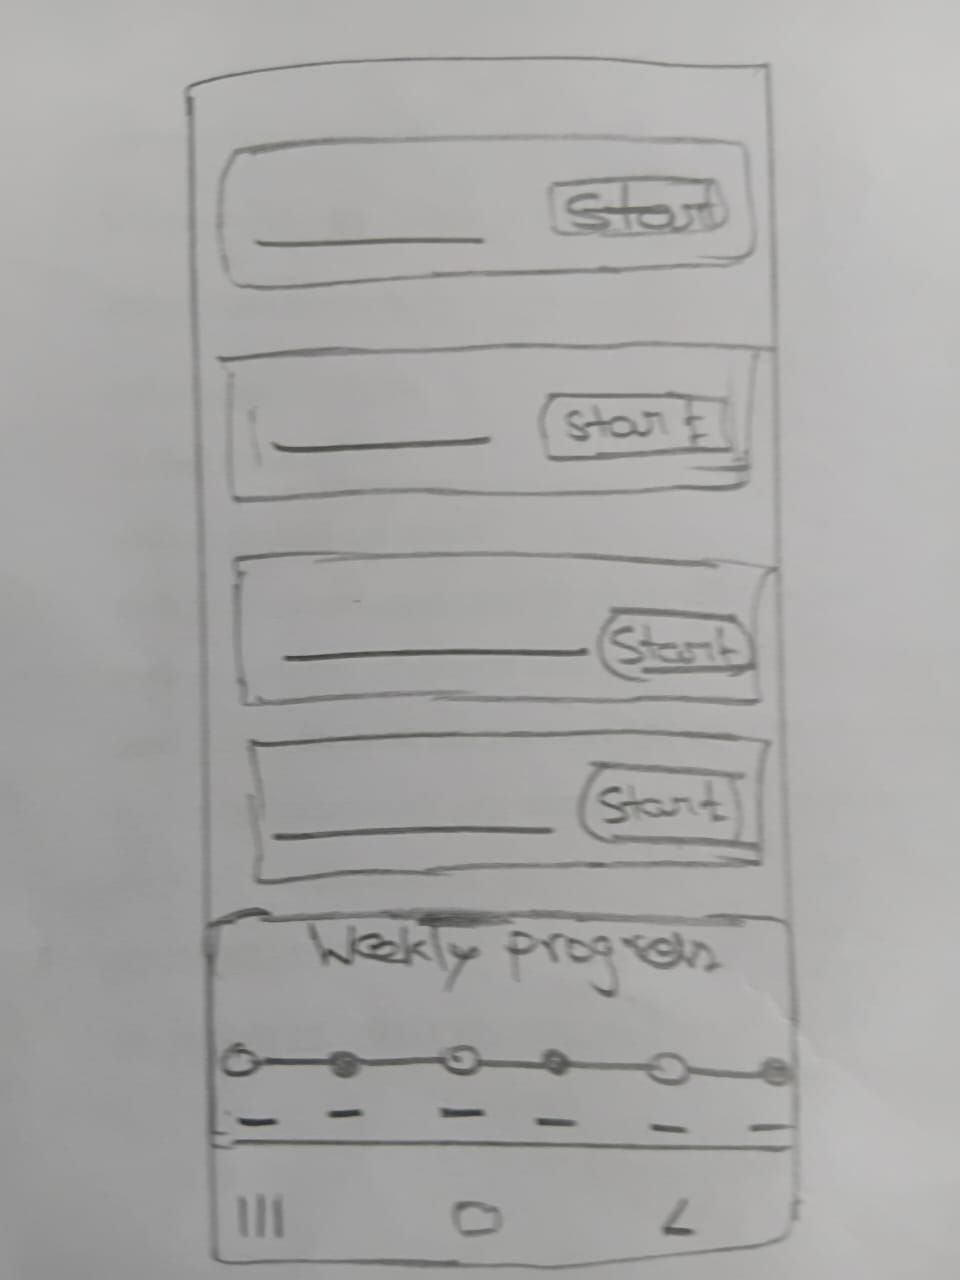 Start
Start
Start
Start
Weekly progress